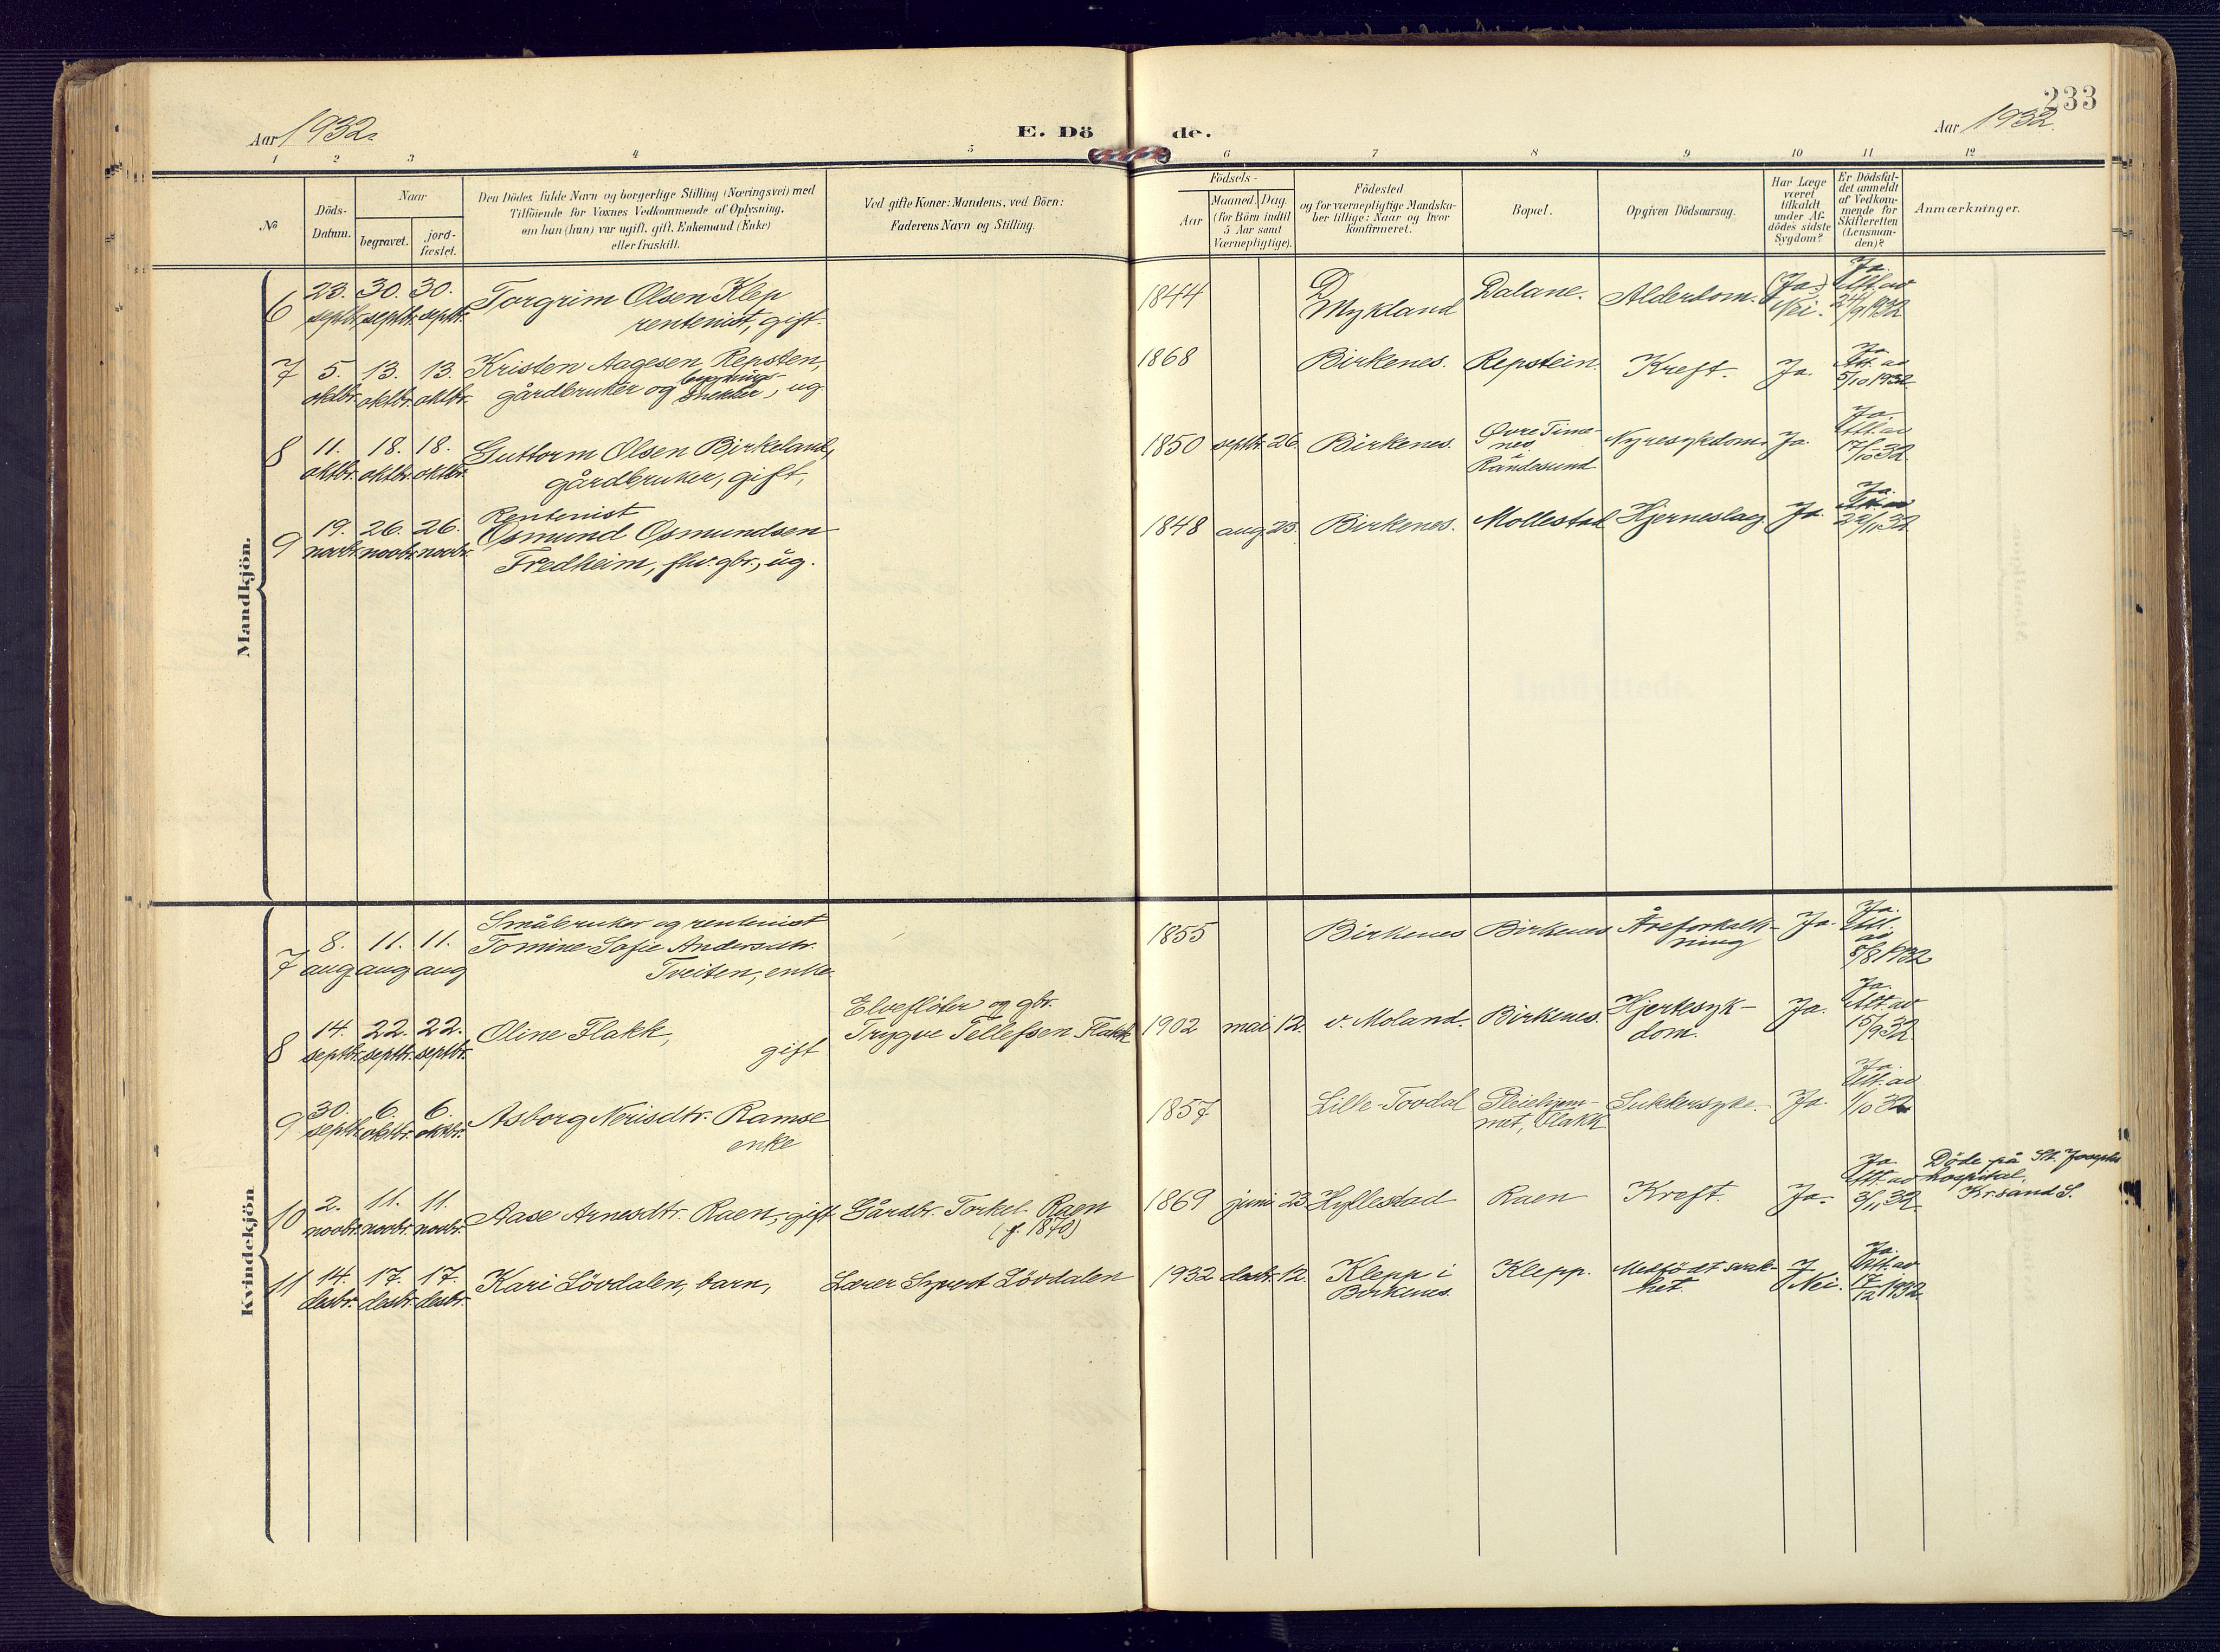 233
Aar 1932.
E. Döde.
Aar 1932.
1 2 3 4 5 6 7 8 9 10 11 12
No
Döds-
Datum.
Naar
begravet.
jord-
fæstet.
Den Dödes fulde Navn og borgerlige Stilling (Næringsvei) med
Tilföiende for Voxnes Vedkommende af Oplysning,
om han (hun) var ugift, gift, Enkemand (Enke)
eller fraskilt.
Ved gifte Koner: Mandens, ved Börn:
Faderens Navn og Stilling.
Födsels-
Aar
Maaned. Dag.
(for Börn indtil
5 Aar samt
Værnepligtige).
Födested
og for værnepligtige Mandska-
ber tillige: Naar og hvor
konfirmeret.
Bopæl.
Opgiven Dödsaarsag.
Har Læge
været
tilkaldt
under Af-
dödes sidste
Sygdom?
Er Dödsfal-
det anmeldt
af Vedkom-
mende for
Skifteretten
(Lensman-
den)?
Anmærkninger.
Mandkjön.
6 23. septbr. 30. septbr. 30. septbr. Torgrim Olsen Klep
rentenist, gift.
1844 Mykland Dalane. Alderdom. (Ja) Nei. Ja. Att. av 24/9 1932
7 5. oktbr. 13. oktbr. 13. oktbr. Kristen Aagesen Repsten,
gårdbruker og bygnings-
snekker, ug.
1868 Birkenes. Repstein. Kreft. Ja. Ja. Att. av 5/10 1932
8 11. oktbr. 18. oktbr. 18. oktbr. Guttorm Olsen Birkeland,
gårdbruker, gift,
1850 septbr. 26. Birkenes. Øvre Time-
nes
Randesund Nyresykdom. Ja. Ja. Att. av 17/10 32
9 19. novbr. 26. novbr. 26. novbr. Rentenist
Osmund Osmundsen
Fredheim, fhv. gbr., ug.
1848 aug. 23. Birkenes. Mollestad Hjerneslag Ja. Ja. Att. av 22/11 32
Kvindekjön
7 8. aug 11. aug 11. aug Småbruker og rentenist
Tomine Sofie Andersdtr.
Tveiten, enke
1855 Birkenes Birkenes Åreforkalk-
ning Ja. Ja. Att. av 8/8 1932
8 14. septbr. 22. septbr. 22. septbr. Oline Flakk,
gift
Elvefløter og gbr.
Trygve Tellefsen Flakk 1902 mai 12. v. Moland. Birkenes. Hjertesyk-
dom. Ja. Ja. Att. av 15/9 32
9 30. septbr. 6. oktbr. 6. oktbr. Asborg Nerisdtr. Ramse
enke
1857 Lille-Tovdal Pleiehjem-
met, Flakk Sukkersyke. Ja. Ja. Att. av 1/10 32
10 2. novbr. 11. novbr. 11. novbr. Aase Arnesdtr. Raen, gift Gårdbr. Torkel Raen
(f. 1870)
1869 juni 23 Hyllestad Raen Kreft. Ja. Ja Att. av 3/11 32 Døde på St. Josephs
hospital,
Kr.sand S.
11 14. desbr. 17. desbr. 17. desbr. Kari Lövdalen, barn, Lærer Syvert Lövdalen
1932 desbr. 12. Klepp i
Birkenes. Klepp. Medfödt svak-
het. Nei. Ja. Att. av 17/12 1932